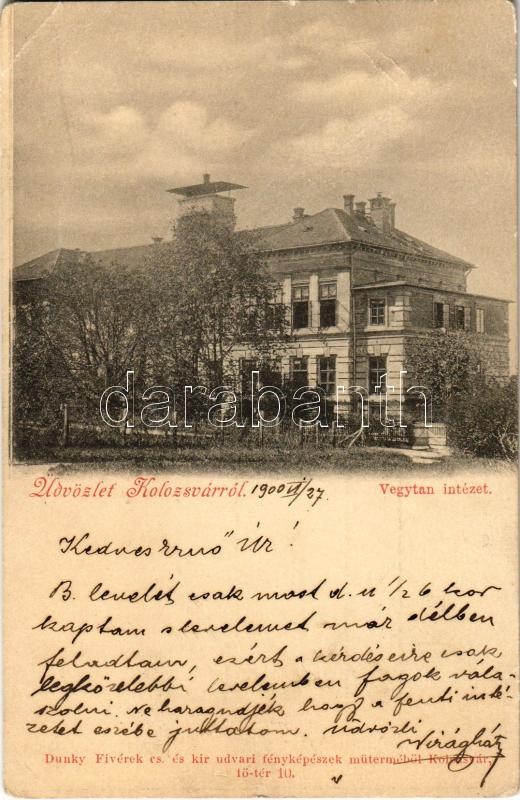 darabanth
Üdvözlet Kolozsvárról. 1900 VI/27 Vegytan intézet.
Kedves Ernő Úr!
B. levelét csak most d. u ½ 6 kor
kaptam s levelemet már délben
feladtam, ezért a kérdéseire csak
legközelebbi levelemben fogok vála-
szolni. Ne haragudjék hogy a fenti inté-
zetet eszébe juttatom. Üdvözli
Virágháty
Dunky Fivérek cs. és kir udvari fényképészek műterméből Kolozsvár,
fő-tér 10.